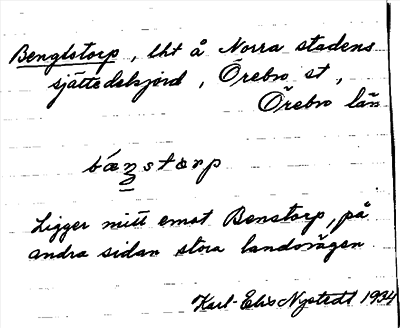 Bengtstorp, lht å Norra stadens
sjättedelsjord, Örebro st,
Örebro län
bæ̀nstɷrp
Ligger mitt emot Benstorp, på
andra sidan stora landsvägen
Karl-Elis Nystedt 1934